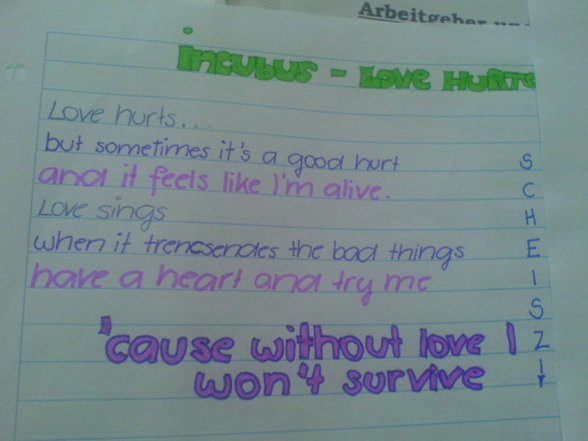 Arbeitgeber
incubus - Love HURTS
Love hurts...
but sometimes it's a good hurt
and it feels like I'm alive.
Love sings
when it trencsendes the bad things
have a heart and try me
'cause without love I
won't survive
S
C
H
E
I
S
Z